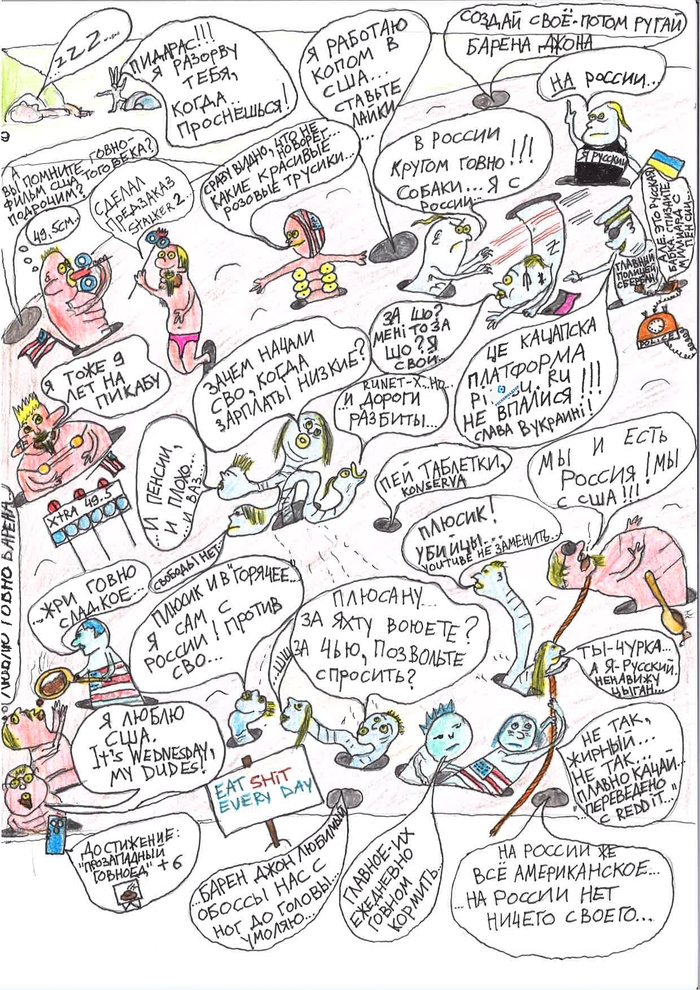 ZZZ...
ПИДАРАС!!!
Я РАЗОРВУ
ТЕБЯ,
КОГДА..
ПРОСНЁШЬСЯ!
Я РАБОТАЮ
КОПОМ В
США...
СТАВЬТЕ
ЛАЙКИ
...
СОЗДАЙ СВОЁ-ПОТОМ РУГАЙ
БАРЕНА ДЖОНА
НА РОССИИ...
Я РУССКИЙ
А
ВЫ ПОМНИТЕ ГОВНО-
ФИЛЬМ США ТОГО ВЕКА?
ПОДРОЧИМ?
49,5СМ..
СДЕЛАЛ
ПРЕДЗАКАЗ
STALKER 2..
СРАЗУ ВИДНО, ЧТО НЕ
ПОВОРЕГ...
КАКИЕ КРАСИВЫЕ
РОЗОВЫЕ ТРУСИКИ...
В РОССИИ
КРУГОМ ГОВНО!!!
СОБАКИ... Я С
РОССИИ...
ГЛАВНЫЙ
ПОЛИЦЕЙ
POLICE
ЗА ШО?
МЕНІ ТО ЗА
ЩО? Я
СВОЙ...
ЦЕ КАЦАПСКА
ПЛАТФОРМА
Pi...U.RU
НЕ ВПАЛИСЯ!!!
СЛАВА УКРАИНІ!
Я ТОЖЕ 9
ЛЕТ НА
ПИКАБУ
ЗАЧЕМ НАЧАЛИ
СВО, КОГДА
ЗАРПЛАТЫ НИЗКИЕ?
RUNET-X..НО...
...И ДОРОГИ
РАЗБИТЫ...
...И ПЕНСИИ,
И ПЛОХО...
...И ВАЗ...
XTRA 49.5
ПЕЙ ТАБЛЕТКИ,
KONSERVA
МЫ И ЕСТЬ
РОССИЯ! МЫ
С США!!!
СВОБОДЫ НЕТ..
ПЛЮСИК!
УБИЙЦЫ...
YOUTUBE НЕ ЗАМЕНИТЬ..
...ЖРИ ГОВНО
СЛАДКОЕ...
ПЛЮСИК И В "ГОРЯЧЕЕ"..
Я САМ С
РОССИИ! ПРОТИВ
СВО...
ПЛЮСАНУ...
ЗА ЯХТУ ВОЮЕТЕ?
ЗА ЧЬЮ, ПОЗВОЛЬТЕ
СПРОСИТЬ?
ТЫ-ЧУРКА...
А Я-РУССКИЙ.
НЕНАВИЖУ
ЦЫГАН...
Я ЛЮБЛЮ
США.
It's WEDNESDAY,
MY DUDES!
НЕ ТАК,
ЖИРНЫЙ...
НЕ ТАК...
ПЛАВНО КАЧАЙ...
"ПЕРЕВЕДЕНО
С REDDIT..."
EAT SHiT
EVERY DAY
ДОСТИЖЕНИЕ:
"ПРОЗАПАДНЫЙ
ГОВНОЕД" +6
...БАРЕН ДЖОН ЛЮБИМЫЙ,
ОБОССЫ НАС С
НОГ ДО ГОЛОВЫ...
УМОЛЯЮ...
ГЛАВНОЕ-ИХ
ЕЖЕДНЕВНО
ГОВНОМ
КОРМИТЬ...
НА РОССИИ ЖЕ
ВСЁ АМЕРИКАНСКОЕ...
...НА РОССИИ НЕТ
НИЧЕГО СВОЕГО...